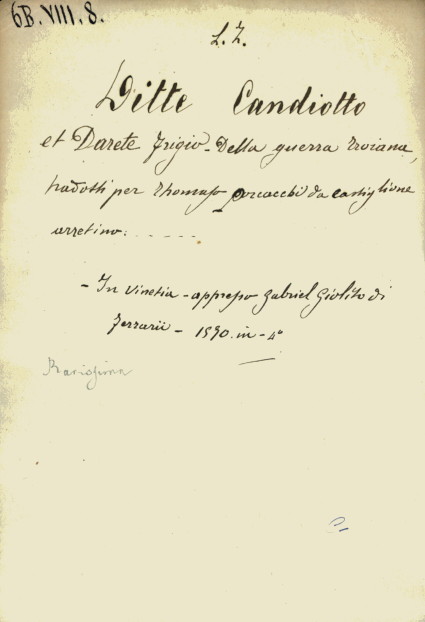 6B.VIII.8.
L. Z.
Ditte Candiotto
et Darete Frigio - Della guerra troiana,
tradotti per Thomaso porcacchi da castiglione
arretino: - - - - -
- In Vinetia - appresso Gabriel Giolito di
Ferrarii - 1570. in - 4°
Rarissima